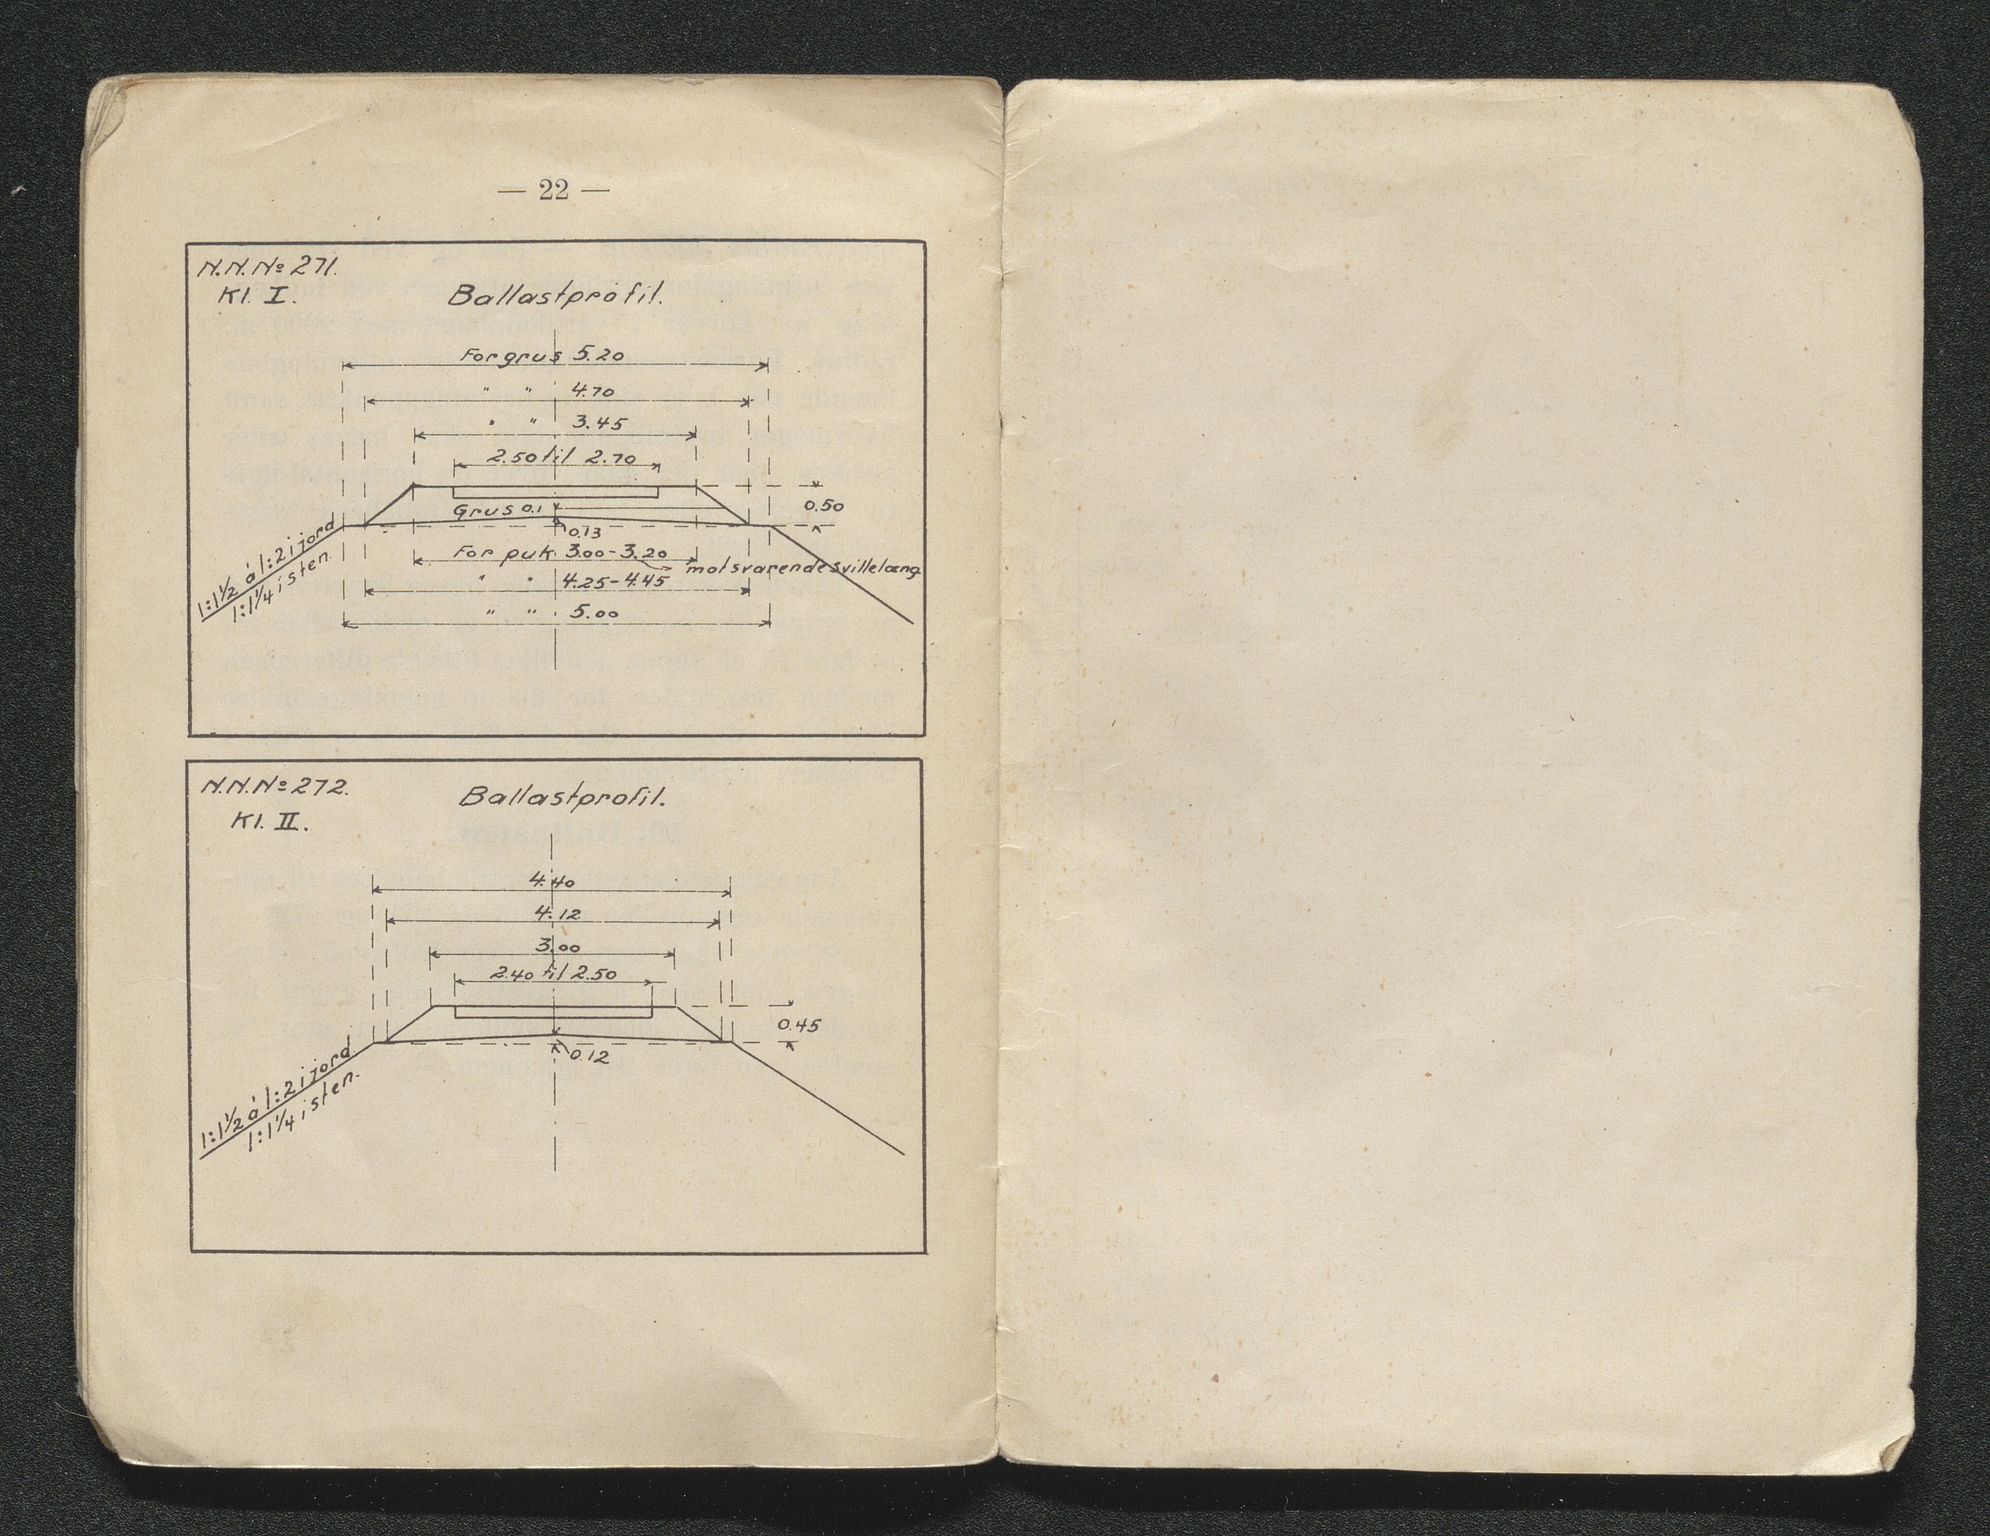 — 22 —
N.N. № 271.
Kl. I.
Ballastprofil.
For grus 5.20
" " 4.70
" " 3.45
2.50 til 2.70
0.50
Grus 0.1
0.13
For puk 3.00-3.20
motsvarende svillelæng.
" " 4.25-4.45
" " 5.00
1:1½ à 1:2 i jord
1:1¼ i sten.
N.N. № 272.
Kl. II.
Ballastprofil.
4.40
4.12
3.00
2.40 til 2.50
0.45
0.12
1:1½ à 1:2 i jord
1:1¼ i sten.